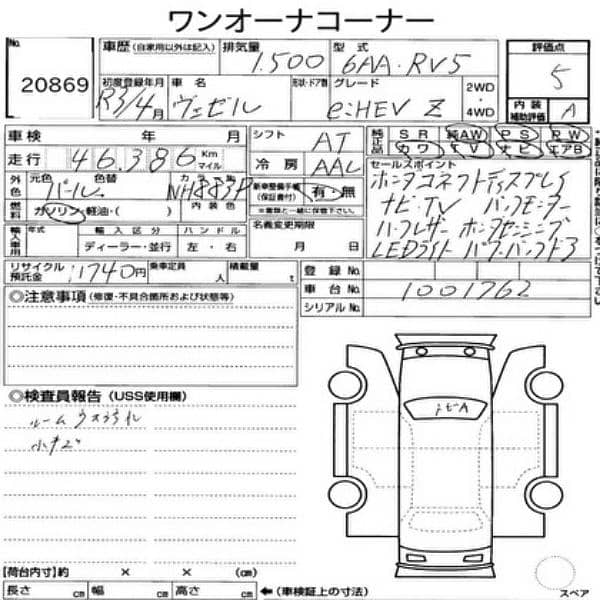 ワンオーナーコーナー
No. 20869
車歴 (自家用以外は記入) 排気量 1.500 型式 6AA・RV5 評価点 5
初度登録年月 R3/4月 車名 ヴェゼル 形状・ドア数 グレード e:HEV Z 2WD・4WD 内装補助評価 A
車検 年 月 シフト AT 純正品 SR 純AW PS PW
カワ TV ナビ エアB
走行 46,386 Km マイル 冷房 AAC
セールスポイント
外色 元色 パール 色替 カラーNo. NH883P 新車整備手帳(保証書付) 有・無
※書類と一緒に保管下さい。
燃料 ガソリン・軽油・( ) 内装色
輸入車用 年式 輸入区分 ハンドル 名義変更期限
ディーラー・並行 左・右 月 日
ホンダコネクトディスプレイ
ナビ・TV バックモニター
ハーフレザー ホンダセンシング
LEDライト パワーバックドア
リサイクル預託金 11740円 乗車定員 人 積載量 t 登録No.
車台No. 1001762
シリアルNo.
◎注意事項 (修復・不具合箇所および状態等)
◎検査員報告 (USS使用欄)
ルーム ウスヨゴレ
小キズ
トビA
【荷台内寸】約 × × (cm)
長さ cm 幅 cm 高さ cm ←(車検証上の寸法)
スペア